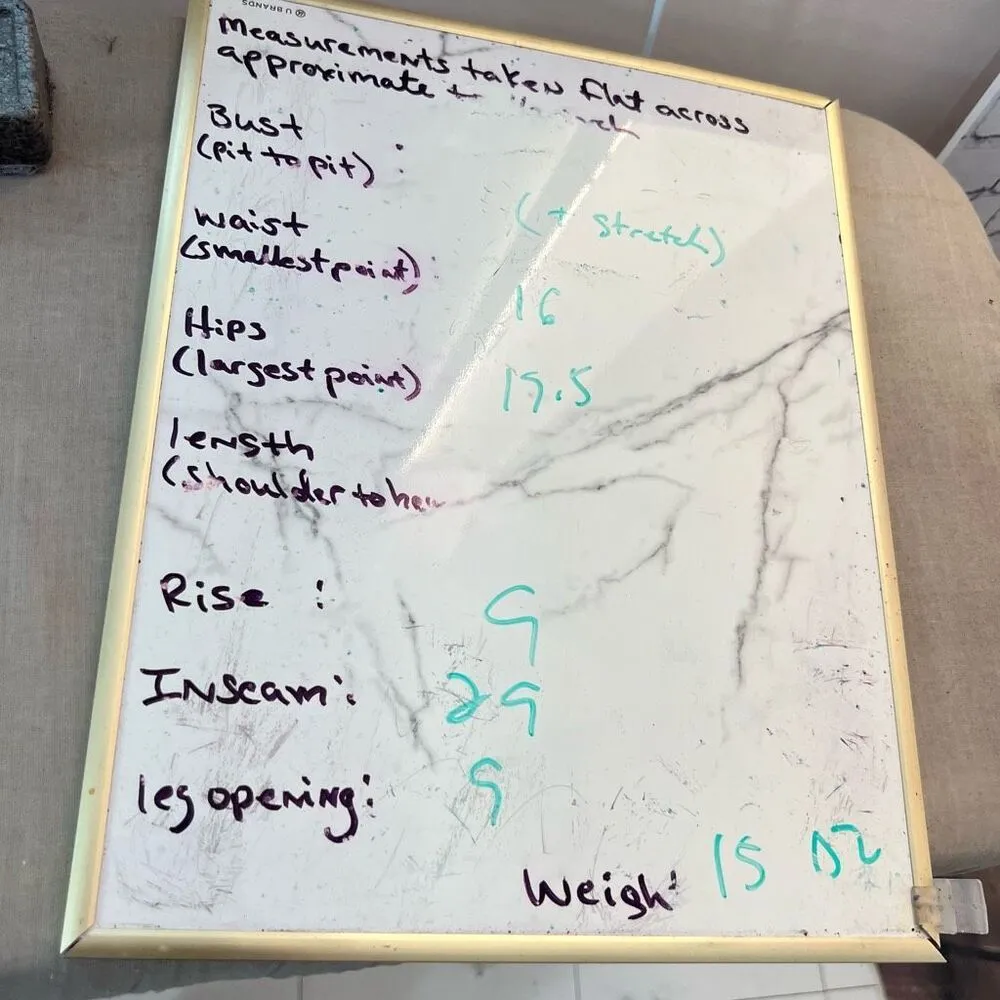 U BRANDS
Measurements taken flat across
approximate
Bust
(pit to pit) :
(+ stretch)
waist
(smallest point) :
16
Hips
(largest point)
19.5
length
(shoulder to
Rise : 9
Inseam : 29
leg opening : 9
Weigh : 15 oz